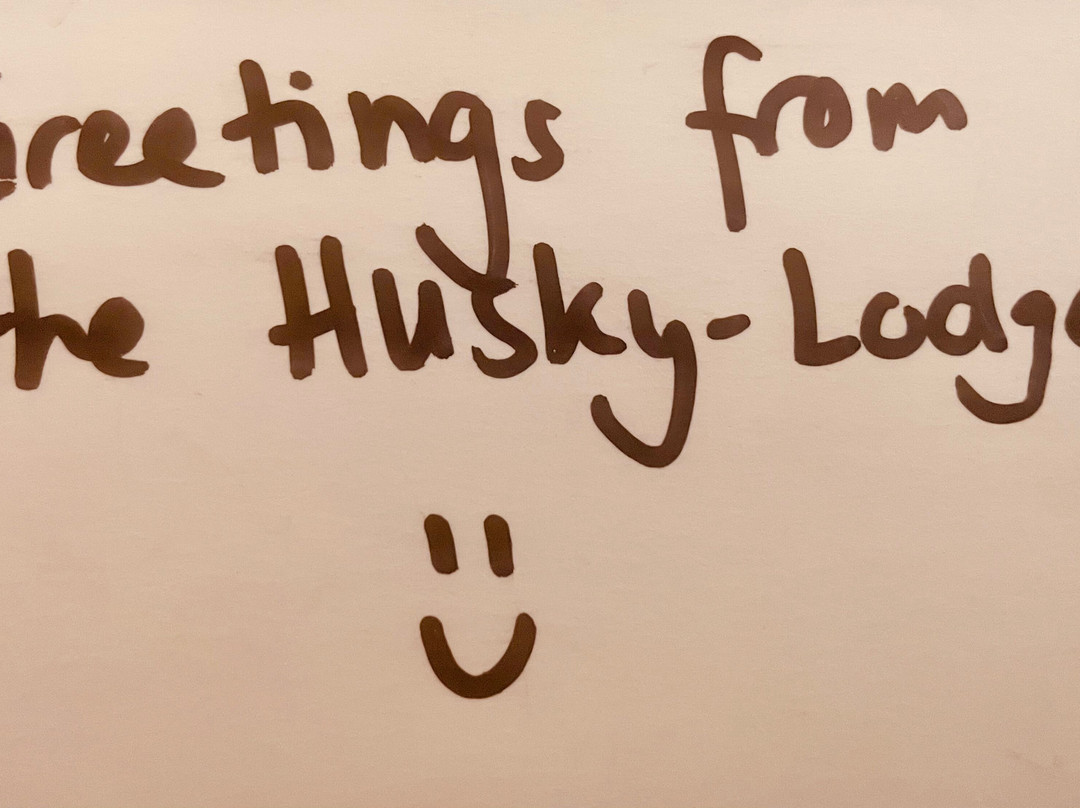 Greetings from
the Husky-Lodge